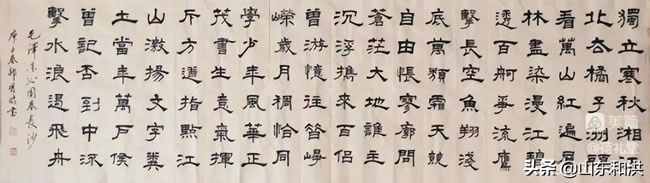 獨立寒秋湘江
北去橘子洲頭
看萬山紅遍層
林盡染漫江碧
透百舸爭流鷹
擊長空魚翔淺
底萬類霜天競
自由悵寥廓問
蒼茫大地誰主
沉浮攜來百侶
曾游憶往昔崢
嶸歲月稠恰同
學少年風華正
茂書生意氣揮
斥方遒指點江
山激揚文字糞
土當年萬戶侯
曾記否到中流
擊水浪遏飛舟
毛澤東沁園春長沙
庚子春郭書
美篇
头条 @山东和洪